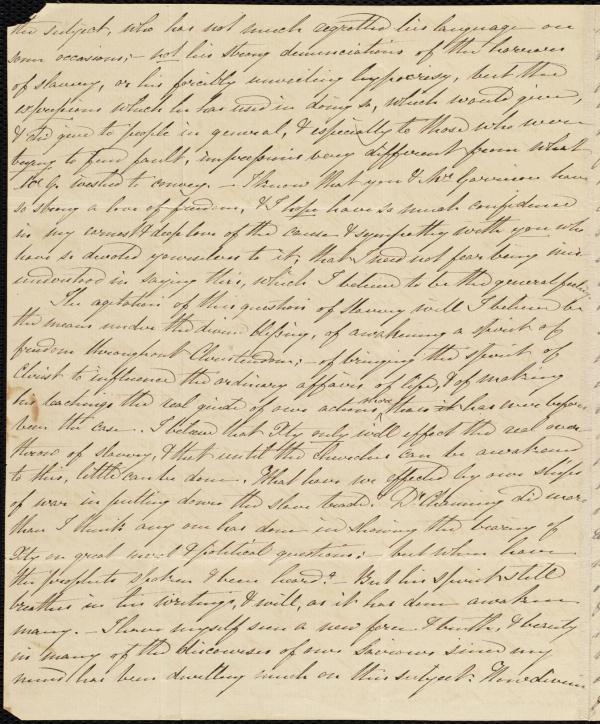 the subject, who has not much regretted his language on
some occasions; - not his strong denunciations of the horrors
of slavery, or his forcibly unveiling hypocrisy, but the
expressions which he has used in doing so, which would give,
& did give to people in general, & especially to those who were
trying to find fault, impressions very different from what
Mr. G. wished to convey. - I know that you & Mr. Garrison have
so strong a love of freedom, & I hope have so much confidence
in my earnest & deep love of the cause & sympathy with you who
have so devoted yourselves to it, that I need not fear being mis
understood in saying this, which I believe to be the general feeling.
The agitation of this question of slavery will I believe be
the means under the divine blessing, of awakening a spirit of
freedom throughout Christendom; - of bringing the spirit of
Christ to influence the ordinary affairs of life, & of making
his teachings the real guide of our actions, more than it has ever before
been the case. I believe that Xty only will effect the real over
throw of slavery, & that until the churches can be awakened
to this, little can be done. What have we effected by our ships
of war in putting down the slave trade? Dr. Channing did more
than I think any one has done in showing the bearing of
Xty on great moral & political questions; - but when have
the prophets spoken & been heard? - But his spirit still
breathes in his writings, & will, as it has done awaken
many. - I have myself seen a new force & truth, & beauty
in many of the discourses of our Saviour since my
mind has been dwelling much on this subject. How divine